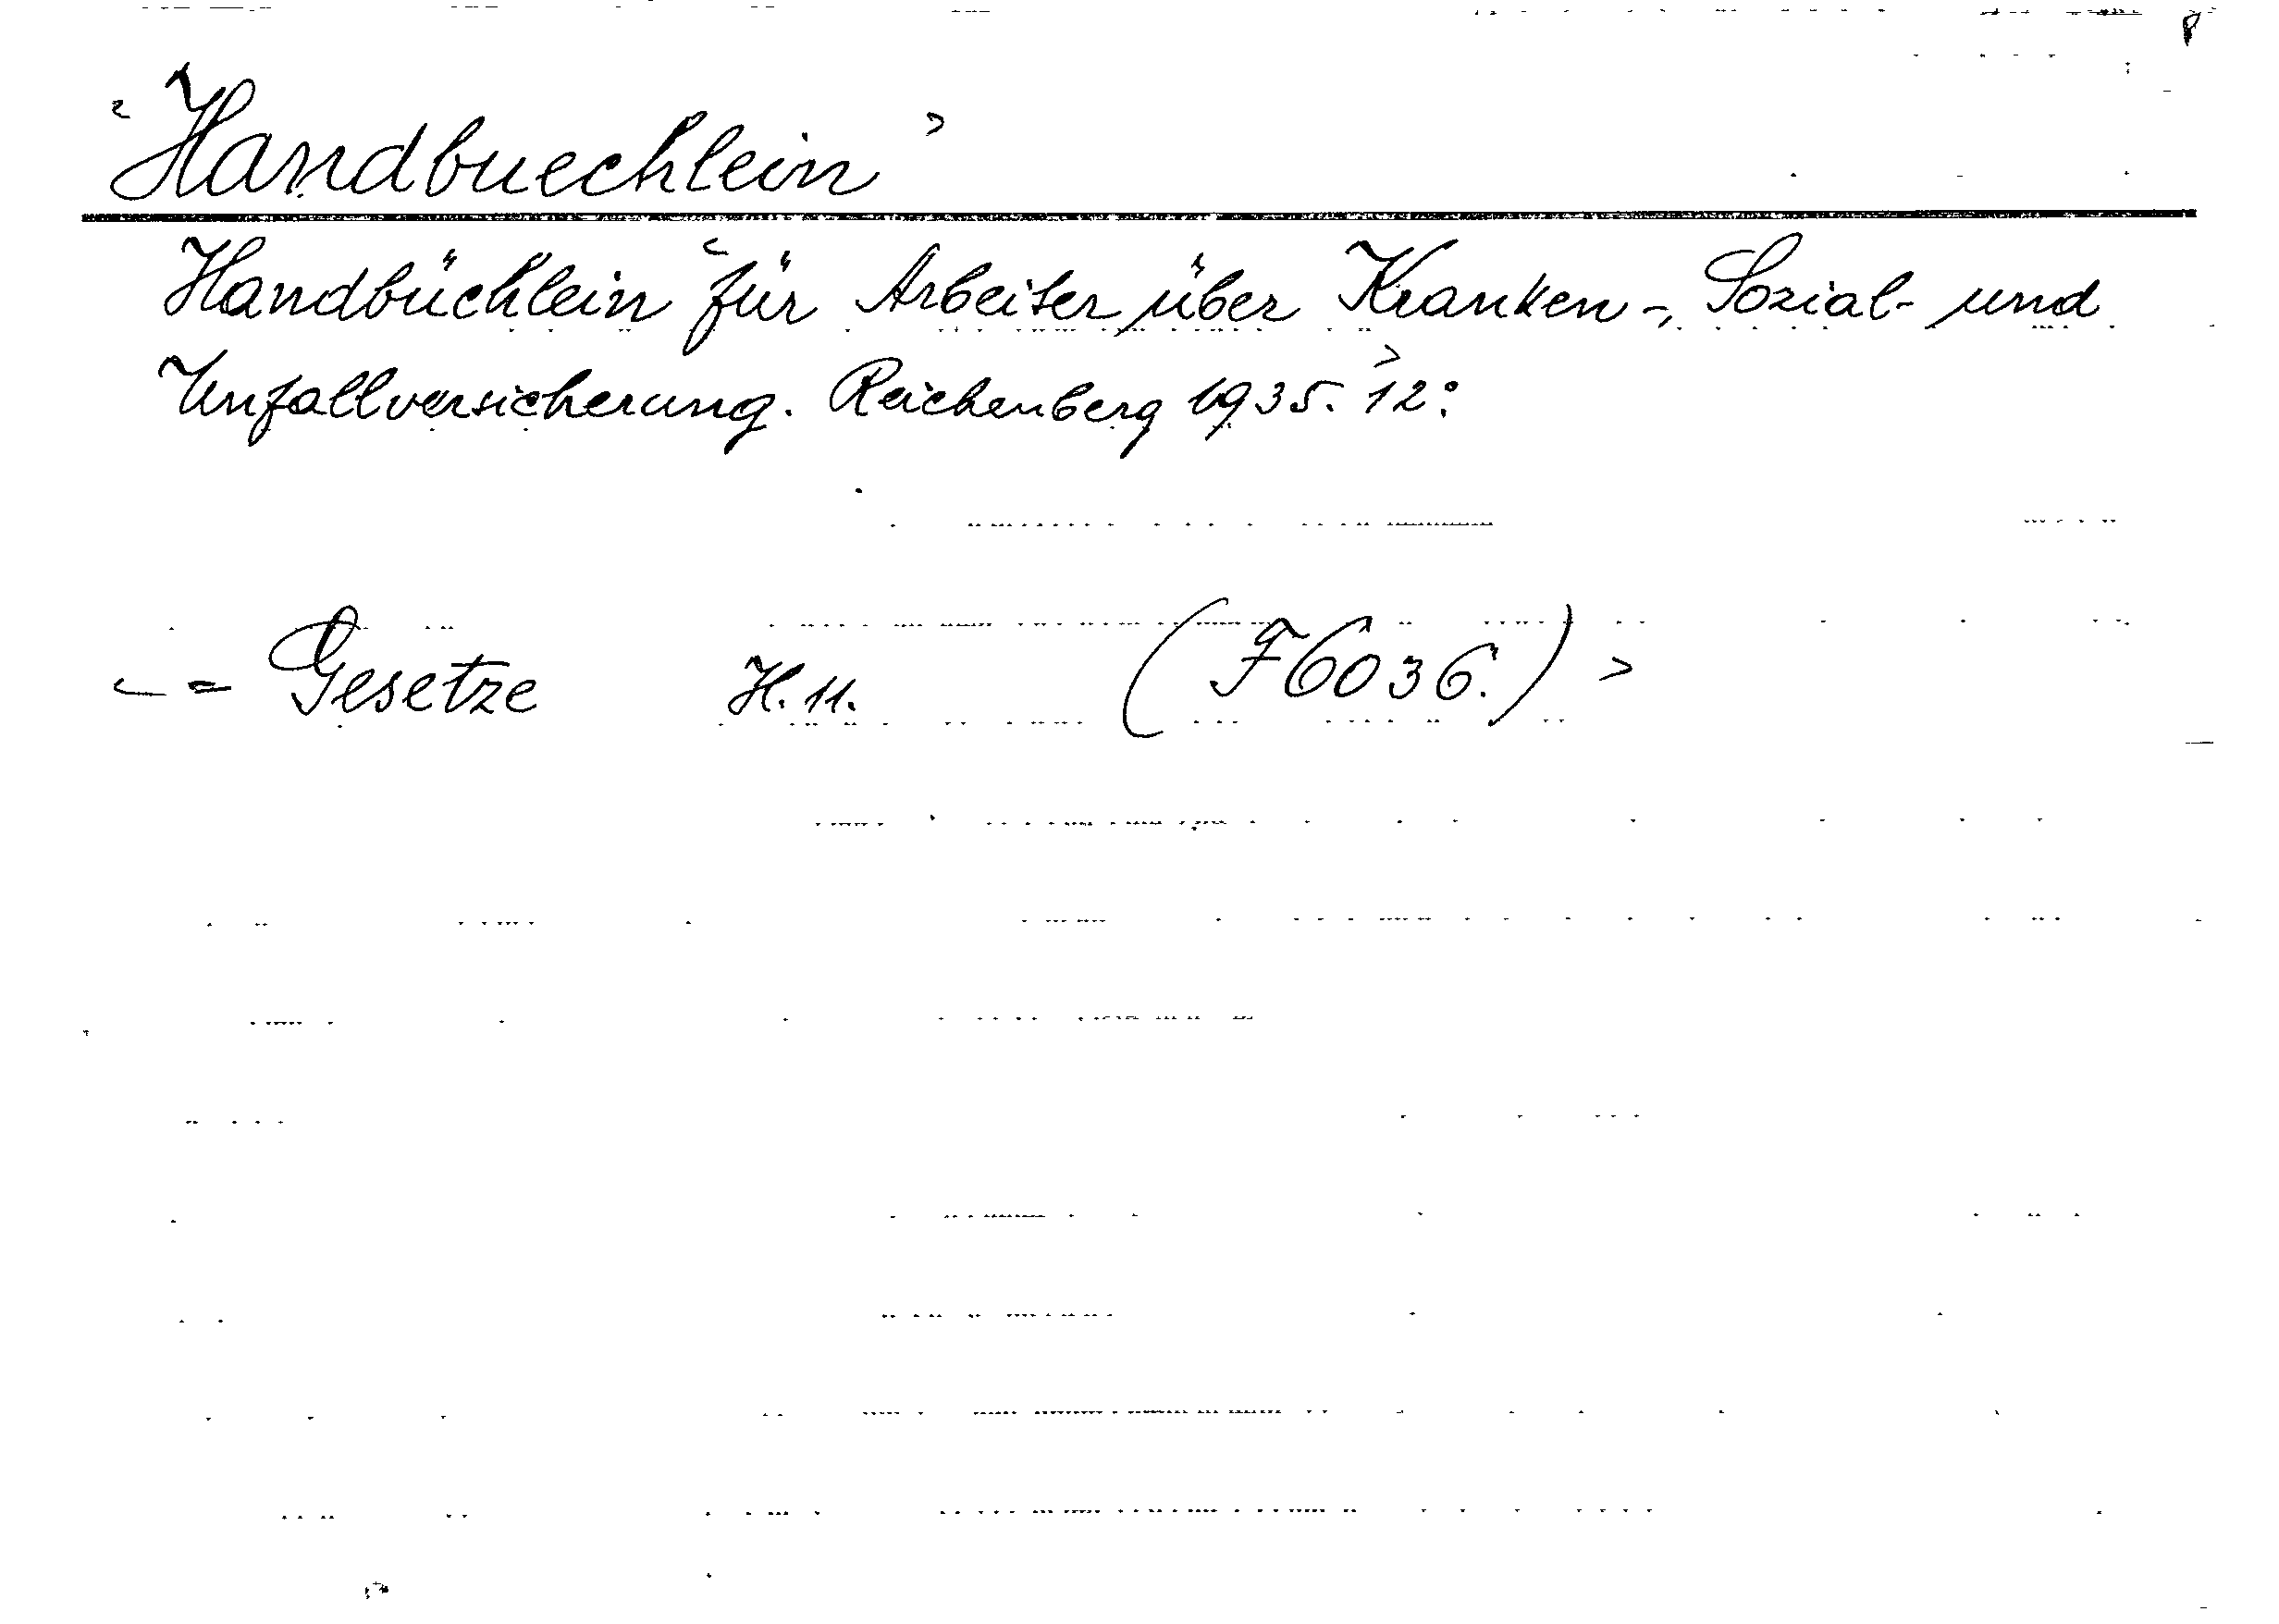 <Handbuechlein>
Handbüchlein <für Arbeiter über Kranken-, Sozial- und
Unfallversicherung. Reichenberg 1935.> 12:
<= Gesetze H. 11. (F6036.)>